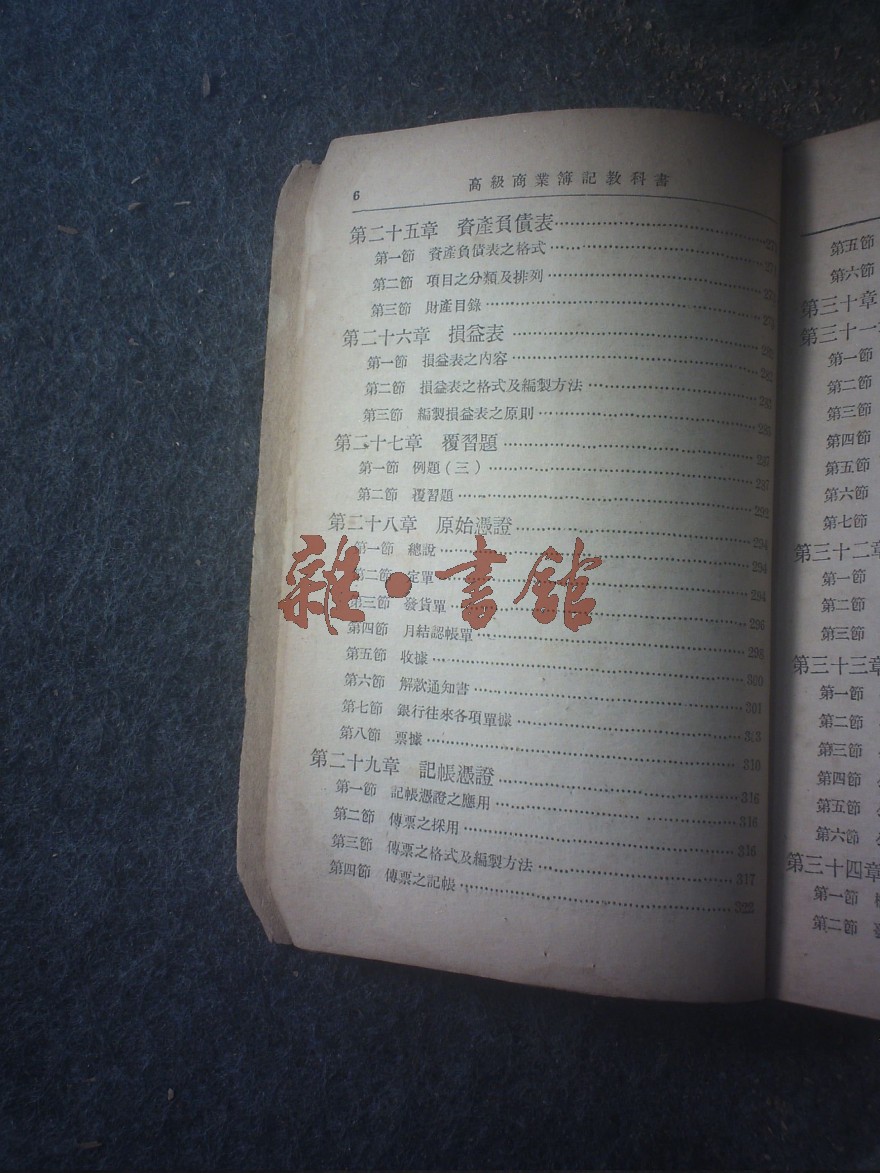 6
高級商業簿記教科書
第二十五章 資產負債表
第一節 資產負債表之格式
第二節 項目之分類及排列
第三節 財產目錄
第二十六章 損益表
第一節 損益表之內容
第二節 損益表之格式及編製方法
第三節 編製損益表之原則
第二十七章 覆習題
第一節 例題(三)
第二節 覆習題 292
第二十八章 原始憑證 294
第一節 總說 294
第二節 定單 294
第三節 發貨單 296
第四節 月結認帳單 298
第五節 收據 300
第六節 解款通知書 301
第七節 銀行往來各項單據 303
第八節 票據 310
第二十九章 記帳憑證 316
第一節 記帳憑證之應用 316
第二節 傳票之採用 316
第三節 傳票之格式及編製方法 317
第四節 傳票之記帳 323
雜·書館
第五節
第六節
第三十章
第三十一
第一節
第二節
第三節
第四節
第五節
第六節
第七節
第三十二章
第一節
第二節
第三節
第三十三章
第一節
第二節
第三節
第四節
第五節
第六節
第三十四章
第一節
第二節